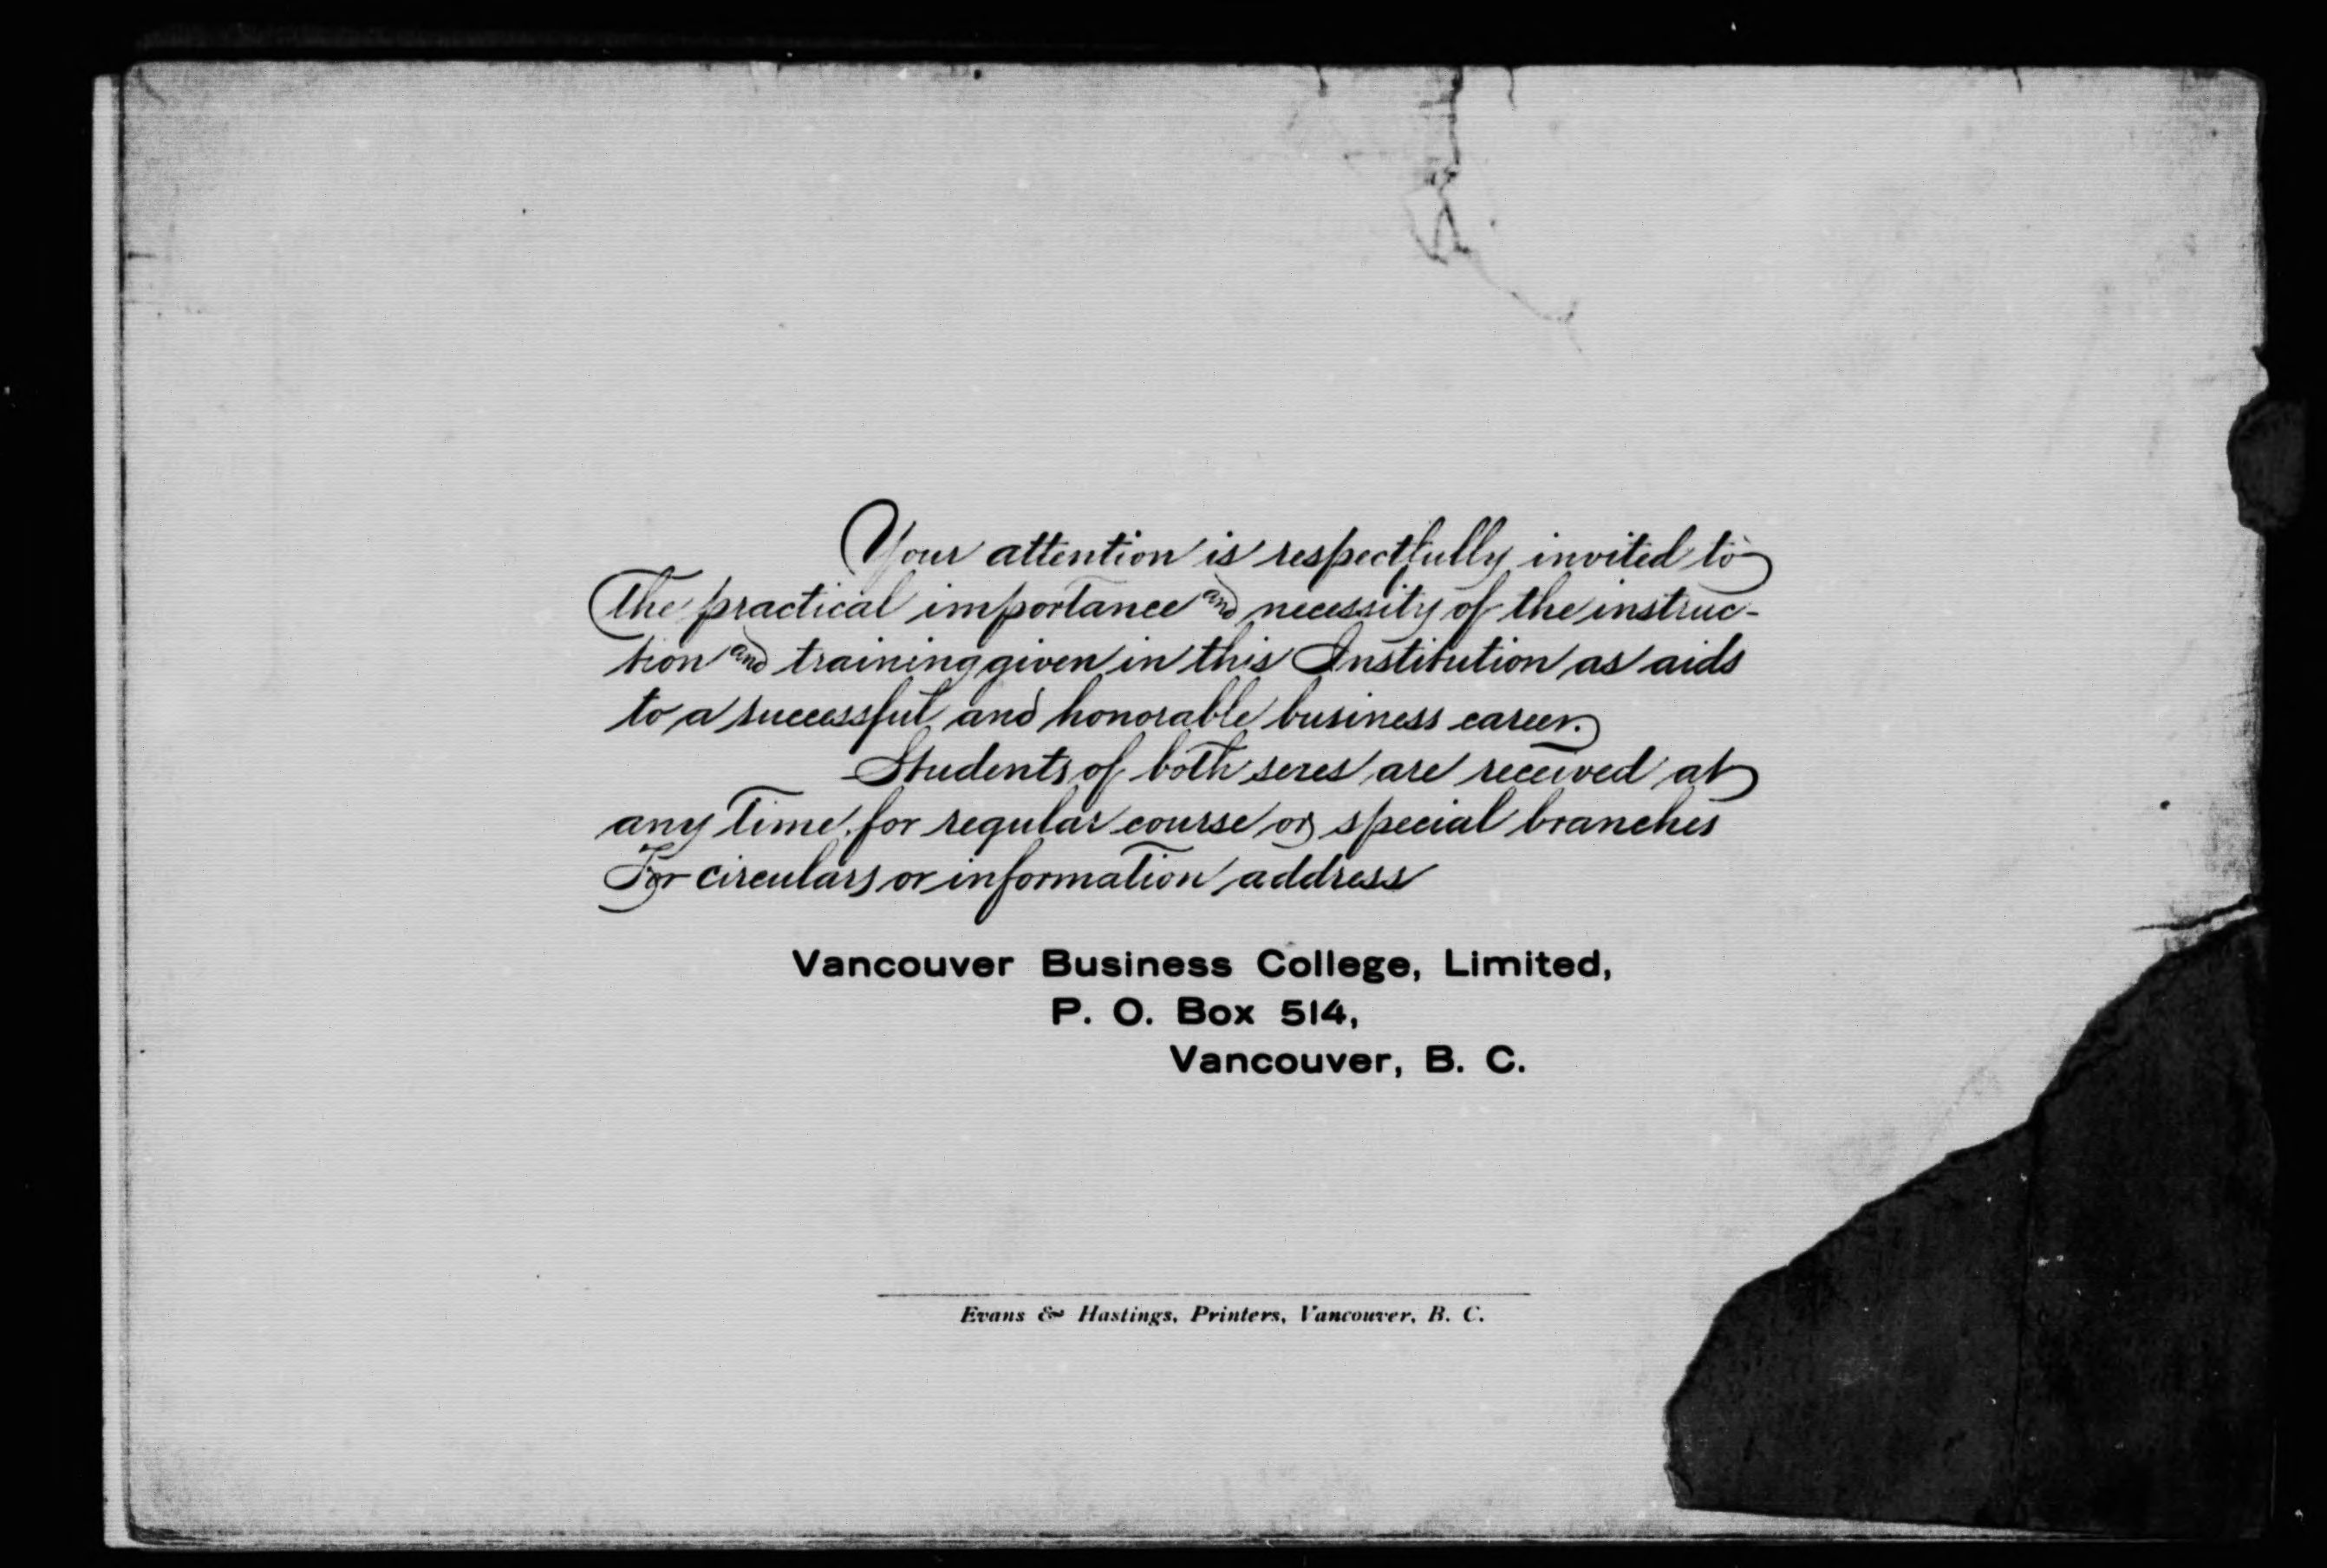 Your attention is respectfully invited to
the practical importance and necessity of the instruc-
tion and training given in this Institution as aids
to a successful and honorable business career.
Students of both sexes are received at
any time for regular course or special branches
For circulars or information address
Vancouver Business College, Limited,
P. O. Box 514,
Vancouver, B. C.
Evans & Hastings, Printers, Vancouver, B. C.